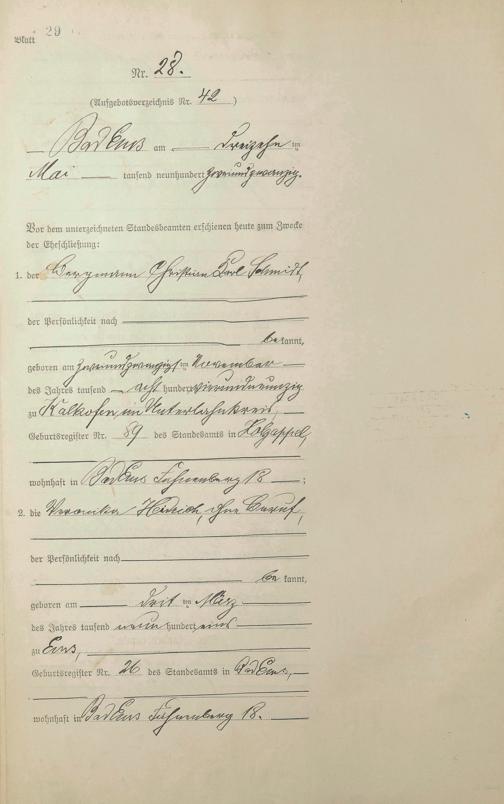 Blatt 29
Nr. 28.
(Aufgebotsverzeichnis Nr. 42)
Bad Ems am Dreizehn ten
Mai tausend neunhundert zweiundzwanzig.
Vor dem unterzeichneten Standesbeamten erschienen heute zum Zwecke
der Eheschließung:
1. der Bergmann Christian Karl Schmidt,
der Persönlichkeit nach
be kannt,
geboren am zweiundzwanzigsten November
des Jahres tausend acht hundert vierundneunzig
zu Kalkofen, im Unterlahnkreis,
Geburtsregister Nr. 89 des Standesamts in Holzappel,
wohnhaft in Bad Ems 18 ;
2. die Veronika, ohne Beruf,
der Persönlichkeit nach
be kannt,
geboren am dritten März
des Jahres tausend neun hundert eins
zu Ems,
Geburtsregister Nr. 26 des Standesamts in Bad Ems,
wohnhaft in Bad Ems 18.